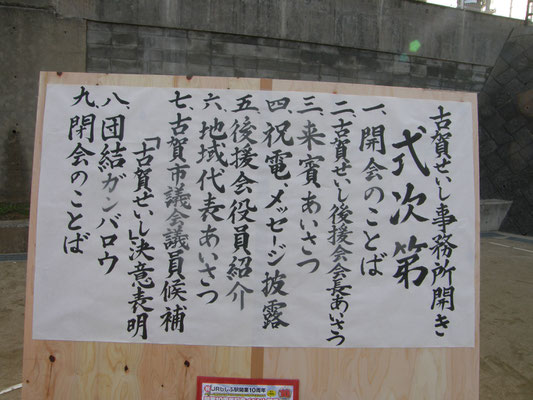 古賀せいし事務所開き
式次第
一、開会のことば
二、古賀せいし後援会会長あいさつ
三、来賓あいさつ
四、祝電、メッセージ披露
五、後援会役員紹介
六、地域代表あいさつ
七、古賀市議会議員候補
「古賀せいし」決意表明
八、団結ガンバロウ
九、閉会のことば
JRししぶ駅開業10周年